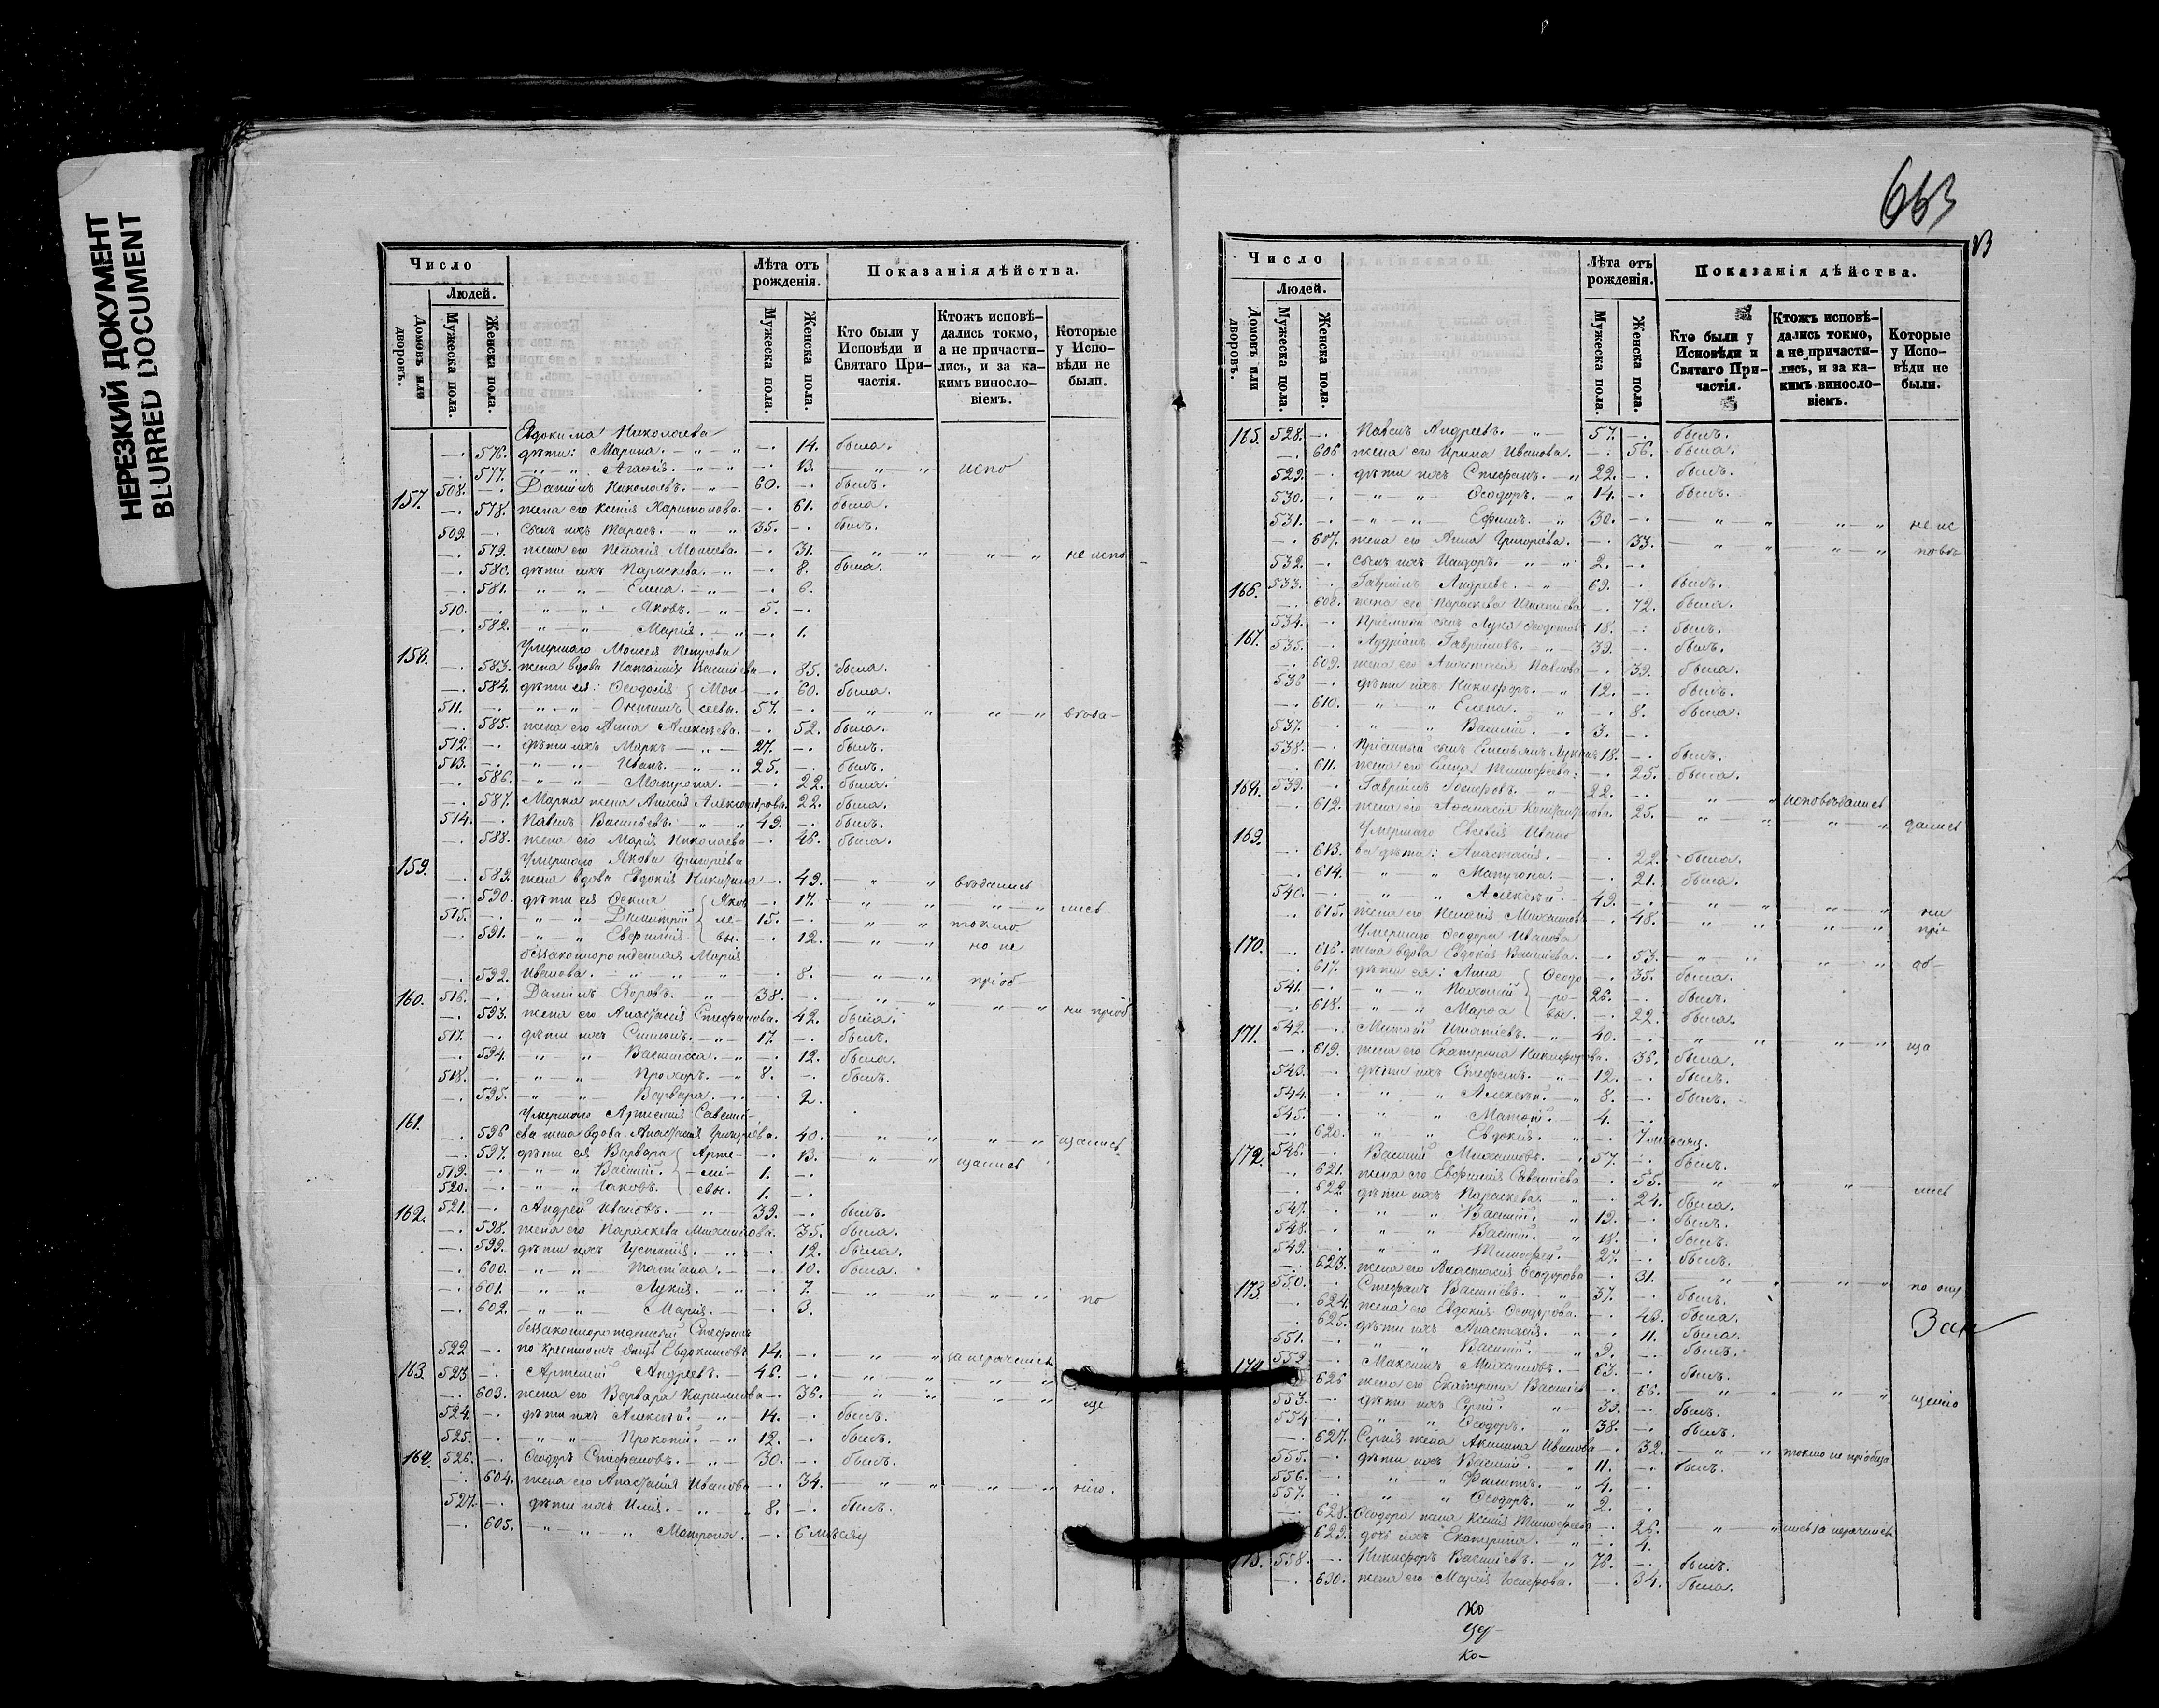 НЕРЕЗКИЙ ДОКУМЕНТ
BLURRED DOCUMENT
Число
Людей.
Домовъ или дворовъ.
Мужеска пола.
Женска пола.
Лѣта отъ рожденія.
Мужеска пола.
Женска пола.
Показанія дѣйства.
Кто были у Исповѣди и Святаго Причастія.
Ктожъ исповѣдались токмо, а не причастились, и за какимъ винословіемъ.
Которые у Исповѣди не были.
Евдокима Николаева
—. 576. дѣти: Марина. — „ — „ —. 14. была.
—. 577. — „ — „ — Агафія. — „ — „ —. 13. „ — „ испо
157. 508. —. Даніилъ Николаевъ. — „ — 60. —. былъ.
—. 578. жена его Ксенія Харитонова. —. 61. была.
509. —. сынъ ихъ Тарасъ. — „ — „ 35. —. былъ.
—. 579. жена его Пелагія Моисеева. —. 31. — „ — „ „ — „ не испо
—. 580. дѣти ихъ Параскева. — „ — —. 8. была.
—. 581. — „ — „ — Елена. — „ — —. 6.
510. —. — „ — „ — Яковъ. — „ — 5. —.
—. 582. — „ — „ — Марія. — „ — —. 1.
158. Умершаго Моисея Петрова
—. 583. жена вдова Наталія Василіева —. 85. была.
—. 584. дѣти ея: Ѳеодосія Мои- —. 60. была.
511. —. — „ — „ — Онисимъ сеевы. 57. —. — „ — „ „ — „ вѣда-
—. 585. жена его Анна Алексѣева. —. 52. была.
512. —. дѣти ихъ Маркъ — „ — 27. —. былъ.
513. —. — „ — „ — Иванъ. — „ — „ 25. —. былъ.
—. 586. — „ — „ — Матрона. — —. 22. была.
—. 587. Марка жена Анисія Александрова. 22. была.
514. —. Павелъ Василіевъ. — „ — „ 49. —. былъ.
—. 588. жена его Марія Николаева —. 46. была.
159. Умершаго Якова Григоріева
—. 589. жена вдова Евдокія Никитина —. 49. „ — „ вѣдались
—. 590. дѣти ея Ѳекла Яков —. 17. „ „ „ — „ лись
515. —. — „ — „ — Димитрій ле- 15. —. „ „ токмо
—. 591. — „ — „ Евфимія вы. —. 12. „ — „ но не
беззаконорожденная Марія
—. 592. Иванова. — „ „ „ —. 8. „ — „ пріоб-
160. 516. —. Даніилъ Егоровъ. — „ — 38. —. „ — „ „ — „ ни пріоб
—. 593. жена его Анастасія Стефанова. —. 42. была.
517. —. дѣти ихъ Симонъ. — „ — 17. —. былъ.
—. 594. — „ — „ — Василисса. — „ —. 12. была.
518. —. — „ — „ — Прохоръ. — „ 8. —. былъ.
—. 595. — „ — „ — Варвара. — „ —. 2.
161. Умершаго Артемія Савелі-
—. 596 ева жена вдова Анастасія Григоріева. —. 40. — „ „ „ — „ щались
—. 597. дѣти ея Варвара Арте- —. 13. — „ „ щались
519. —. — „ — „ Василій. мі- 1. —.
520. —. — „ — „ Іаковъ. евы. 1. —.
162. 521. —. Андрей Ивановъ. — „ — 39. —. былъ.
—. 598. жена его Параскева Михаилова. —. 35. была.
—. 599. дѣти ихъ Іустинія. — „ — —. 12. была.
—. 600. — „ — „ — Татіана. — —. 10. была.
—. 601. — „ — „ — Лукія. — „ —. 7. „ — „ „ — „ по
—. 602. — „ — „ — Марія. — —. 3.
беззаконорожденный Стефанъ
522 —. по крестномъ отцѣ Евдокимовъ 14. —. „ „ за нераченіемъ
163. 523 —. Артемій Андреевъ. — 46. —. „ — „ „ — „
—. 603. жена его Варвара Кирилова —. 36. „ — „ „ — „ ще
524. —. дѣти ихъ Алексѣй. — „ — 14. —. былъ.
525. —. — „ — „ — Прокопій. — „ 12. —. былъ.
164. 526. —. Ѳеодоръ Стефановъ. — „ — 30. —. былъ.
—. 604. жена его Анастасія Иванова —. 34. — „ „ „ — „ нію.
527. —. дѣти ихъ Илія. — „ — „ 8. —. былъ.
—. 605. — „ — „ — „ Матрона. —. 6 мѣсяц
663
Число
Людей.
Домовъ или дворовъ.
Мужеска пола.
Женска пола.
Лѣта отъ рожденія.
Мужеска пола.
Женска пола.
Показанія дѣйства.
Кто были у Исповѣди и Святаго Причастія.
Ктожъ исповѣдались токмо, а не причастились, и за какимъ винословіемъ.
Которые у Исповѣди не были.
165. 528. —. Павелъ Андреевъ. — „ — 57. —. былъ.
—. 606 жена его Ирина Иванова. —. 56. была.
529. —. дѣти ихъ Стефанъ. — „ 22. —. былъ.
530. —. — „ — „ — Ѳеодоръ. — „ 14. —. былъ.
531. —. — „ — „ — Ефимъ. — „ 30. —. — „ — „ „ — „ не ис
—. 607. жена его Анна Григоріева. —. 33. — „ „ „ — „ повѣ
532. —. сынъ ихъ Исидоръ. — „ — „ 2. —.
166. 533. —. Гавріилъ Андреевъ. — „ — 69. —. былъ.
—. 608. жена его Параскева Игнатіева —. 72. была.
534. —. Пріемный сынъ Лука Ѳеодотовъ 18. —. былъ.
167. 535. —. Андріанъ Гавріиловъ. — „ 39. —. былъ.
—. 609. жена его Анастасія Павлова —. 39. была.
536 —. дѣти ихъ Никифоръ. — „ 12. —. былъ.
—. 610. — „ — „ Елена. — „ —. 8. была.
537. —. — „ — „ Василій. — „ 3. —.
538. —. Пріемный сынъ Емеліанъ Лукинъ 18. —. былъ.
—. 611. жена его Елена Тимофеева. —. 25. была.
168. 539. —. Гавріилъ Іосифовъ. — „ 22. —. „ — „ исповѣдались
—. 612. жена его Аѳанасія Константинова. 25. — „ „ „ — „ дались
169. Умершаго Евсевія Ивано
—. 613. ва дѣти: Анастасія. — —. 22. была.
—. 614. — „ „ Матрона. — —. 21. была.
540. —. — „ „ Алексѣй. — 49. —. — „ „ „ — „ ни
—. 615. жена его Пелагія Михаилова —. 48. „ „ „ — „ прі-
170. Умершаго Ѳеодора Иванова
—. 616. жена вдова Евдокія Василіева. —. 53. — „ — „ „ — „ об-
—. 617. дѣти ея: Анна Ѳеодо —. 35. была.
541. —. — „ „ Пахомій ро- 26. —. былъ.
—. 618. — „ „ Марѳа вы. —. 22. была.
171. 542. —. Матѳій Игнатіевъ. — „ 40. —. „ „ „ — „ ща
—. 619. жена его Екатерина Никифорова. 36. была.
543. —. дѣти ихъ Стефанъ. — „ 12. —. былъ.
544. —. „ „ Алексѣй. — „ 8. —. былъ.
545. —. „ „ Матѳій. — 4. —.
—. 620. „ „ Евдокія. — „ —. 7 мѣсяц.
172. 546. —. Василій Михаиловъ. — „ 57. —. былъ.
—. 621. жена его Евфимія Савеліева —. 55. — „ „ „ лись
—. 622 дѣти ихъ Параскева. — „ —. 24. была.
547. —. „ „ Василій. — „ 19. —. былъ.
548. —. „ „ Василій. — „ 18. —. былъ.
549. —. „ „ Тимофей. — 27. —. былъ.
—. 623. жена его Анастасія Ѳеодорова —. 31. „ „ „ — „
173. 550. —. Стефанъ Василіевъ. — „ 37. —. былъ.
—. 624. жена его Евдокія Ѳеодорова. —. 43. была.
—. 625. дѣти ихъ Анастасія. — „ —. 11. была.
551. —. „ „ Василій. — „ 9. —. былъ.
174. 552 —. Максимъ Михаиловъ. — 63. —. былъ.
—. 626 жена его Екатерина Василіев —. 66. „ „ „ „
553. —. дѣти ихъ Сергій. — „ 39. —. былъ.
554 —. „ „ Ѳеодоръ. — „ 38. —. былъ.
—. 627. Сергія жена Акилина Иванова —. 32. — „ — „ токмо не пріобща
555. —. дѣти ихъ Василій. — „ 11. —. былъ.
556. —. „ „ Филиппъ. — „ 4. —.
557. —. „ „ Ѳеодоръ. — „ 2. —.
—. 628. Ѳеодора жена Ксенія Тимофеева —. 26. — „ „ лись за нераченіемъ
—. 629. дочь ихъ Екатерина. — „ —. 4.
175. 558. —. Никифоръ Василіевъ. — „ 76. —. былъ.
—. 630. жена его Марія Іосифова. —. 34. была.
Зак
ко
ко-